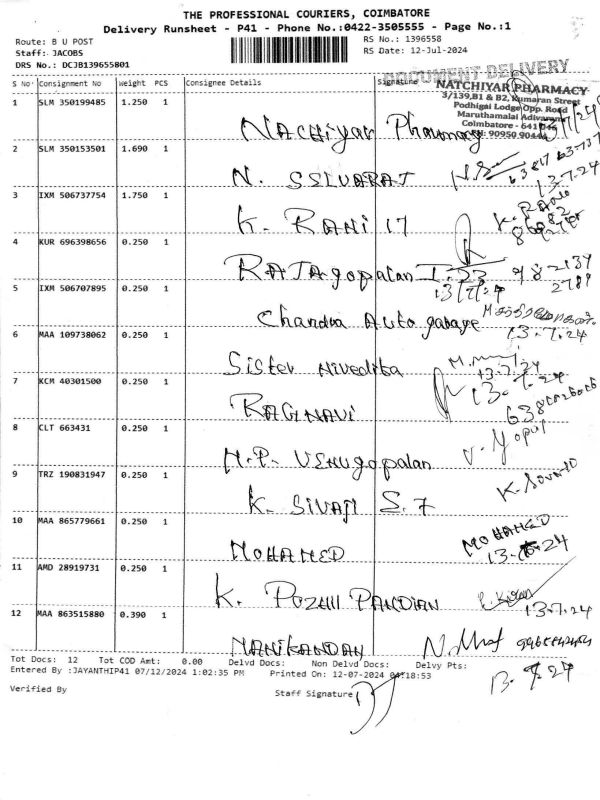 THE PROFESSIONAL COURIERS, COIMBATORE
Delivery Runsheet - P41 - Phone No.:0422-3505555 - Page No.:1
Route: B U POST
RS No.: 1396558
Staff: JACOBS
RS Date: 12-Jul-2024
DRS No.: DCJB139655801
DOCUMENT DELIVERY
S No Consignment No Weight PCS Consignee Details Signature
NATCHIYAR PHARMACY
3/139,B1 & B2, Kumaran Street
Podhigai Lodge Opp. Road
Maruthamalai Adivaram
Coimbatore - 641046
1 SLM 350199485 1.250 1
Nachiyar Pharmacy
2 SLM 350153501 1.690 1
N. SELVARAJ
13.7.24
3 IXM 506737754 1.750 1
K. RANI 17
K. RANI
4 KUR 696398656 0.250 1
RAJAgopalan I. 23
13/7/24
5 IXM 506707895 0.250 1
Chandra Auto gabage
13.7.24
6 MAA 109738062 0.250 1
Sister Nivedita
13.7.24
7 KCM 40301500 0.250 1
RAGHAVI
13.7.24
8 CLT 663431 0.250 1
H.P. VENUgopalan
V. Gopal
9 TRZ 190831947 0.250 1
K. SIVAJI S. 7
10 MAA 865779661 0.250 1
MOHAMED
MOHAMED
11 AMD 28919731 0.250 1
K. POZHIL PANDIAN
13.7.24
12 MAA 863515880 0.390 1
MANIKANDAN
13.7.24
Tot Docs: 12 Tot COD Amt: 0.00 Delvd Docs: Non Delvd Docs: Delvy Pts:
Entered By :JAYANTHIP41 07/12/2024 1:02:35 PM Printed On: 12-07-2024 04:18:53
Verified By
Staff Signature